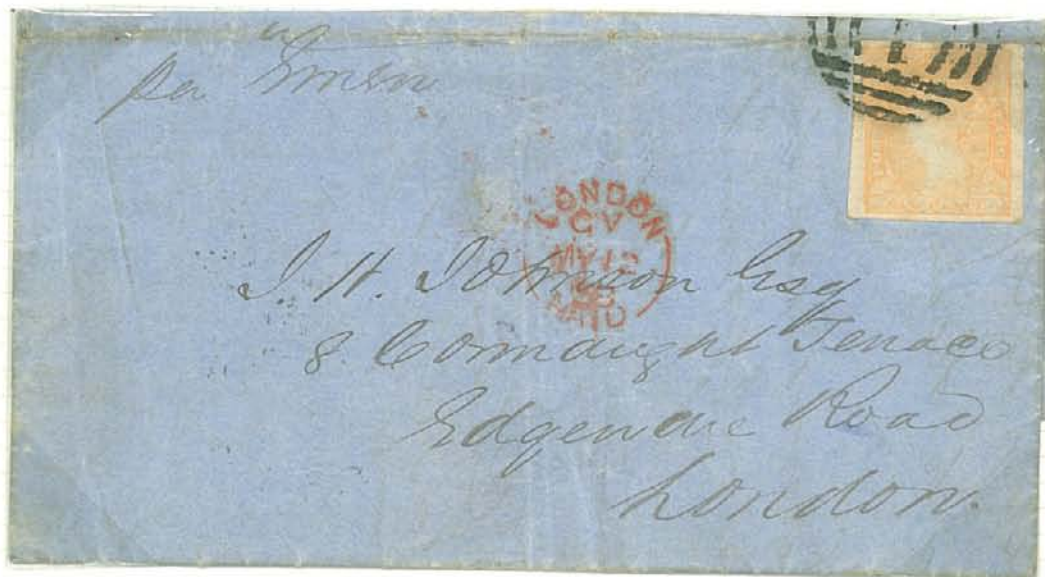 per Emeu
LONDON
CV
MY 12
58
PAID
J. H. Johnson Esq
8 Connaught Terrace
Edgeware Road
London.